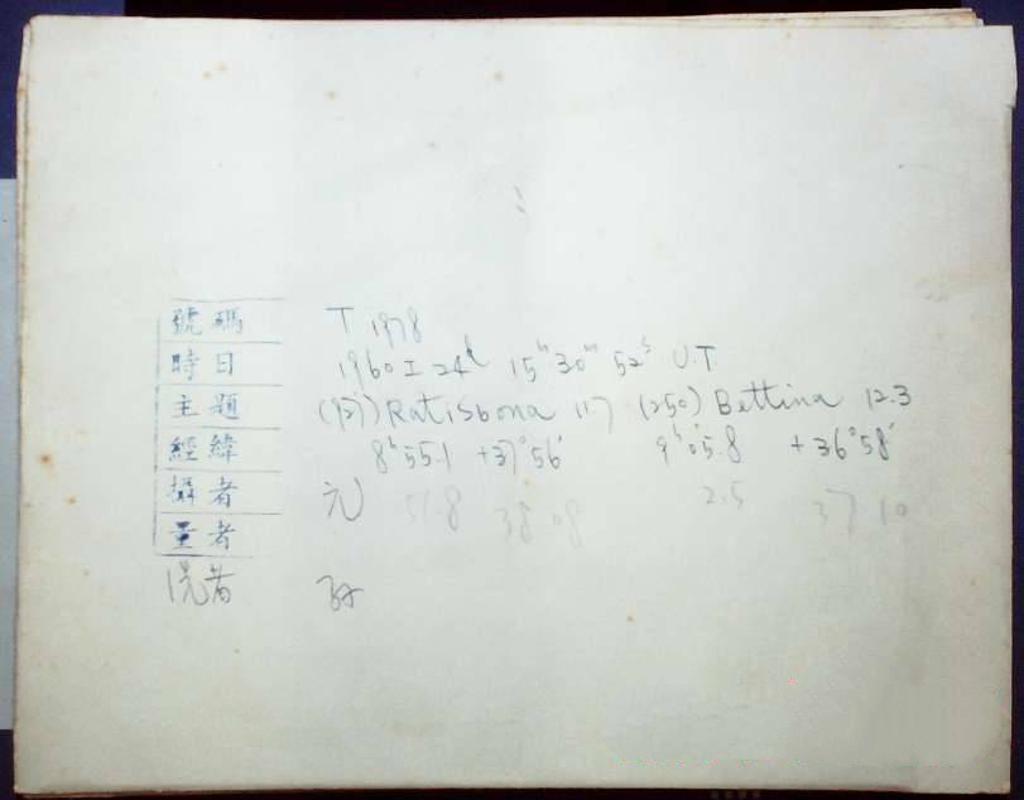 號碼 T 1978
時日 1960 I 24d 15h 30m 52s U.T
主題 (927) Ratisbona 11.7 (250) Bettina 12.3
經緯 8h 55.1 +37° 56' 9h 05.8 +36° 58'
攝者 元 51.8 38 08 2.5 37 10
量者
洗者